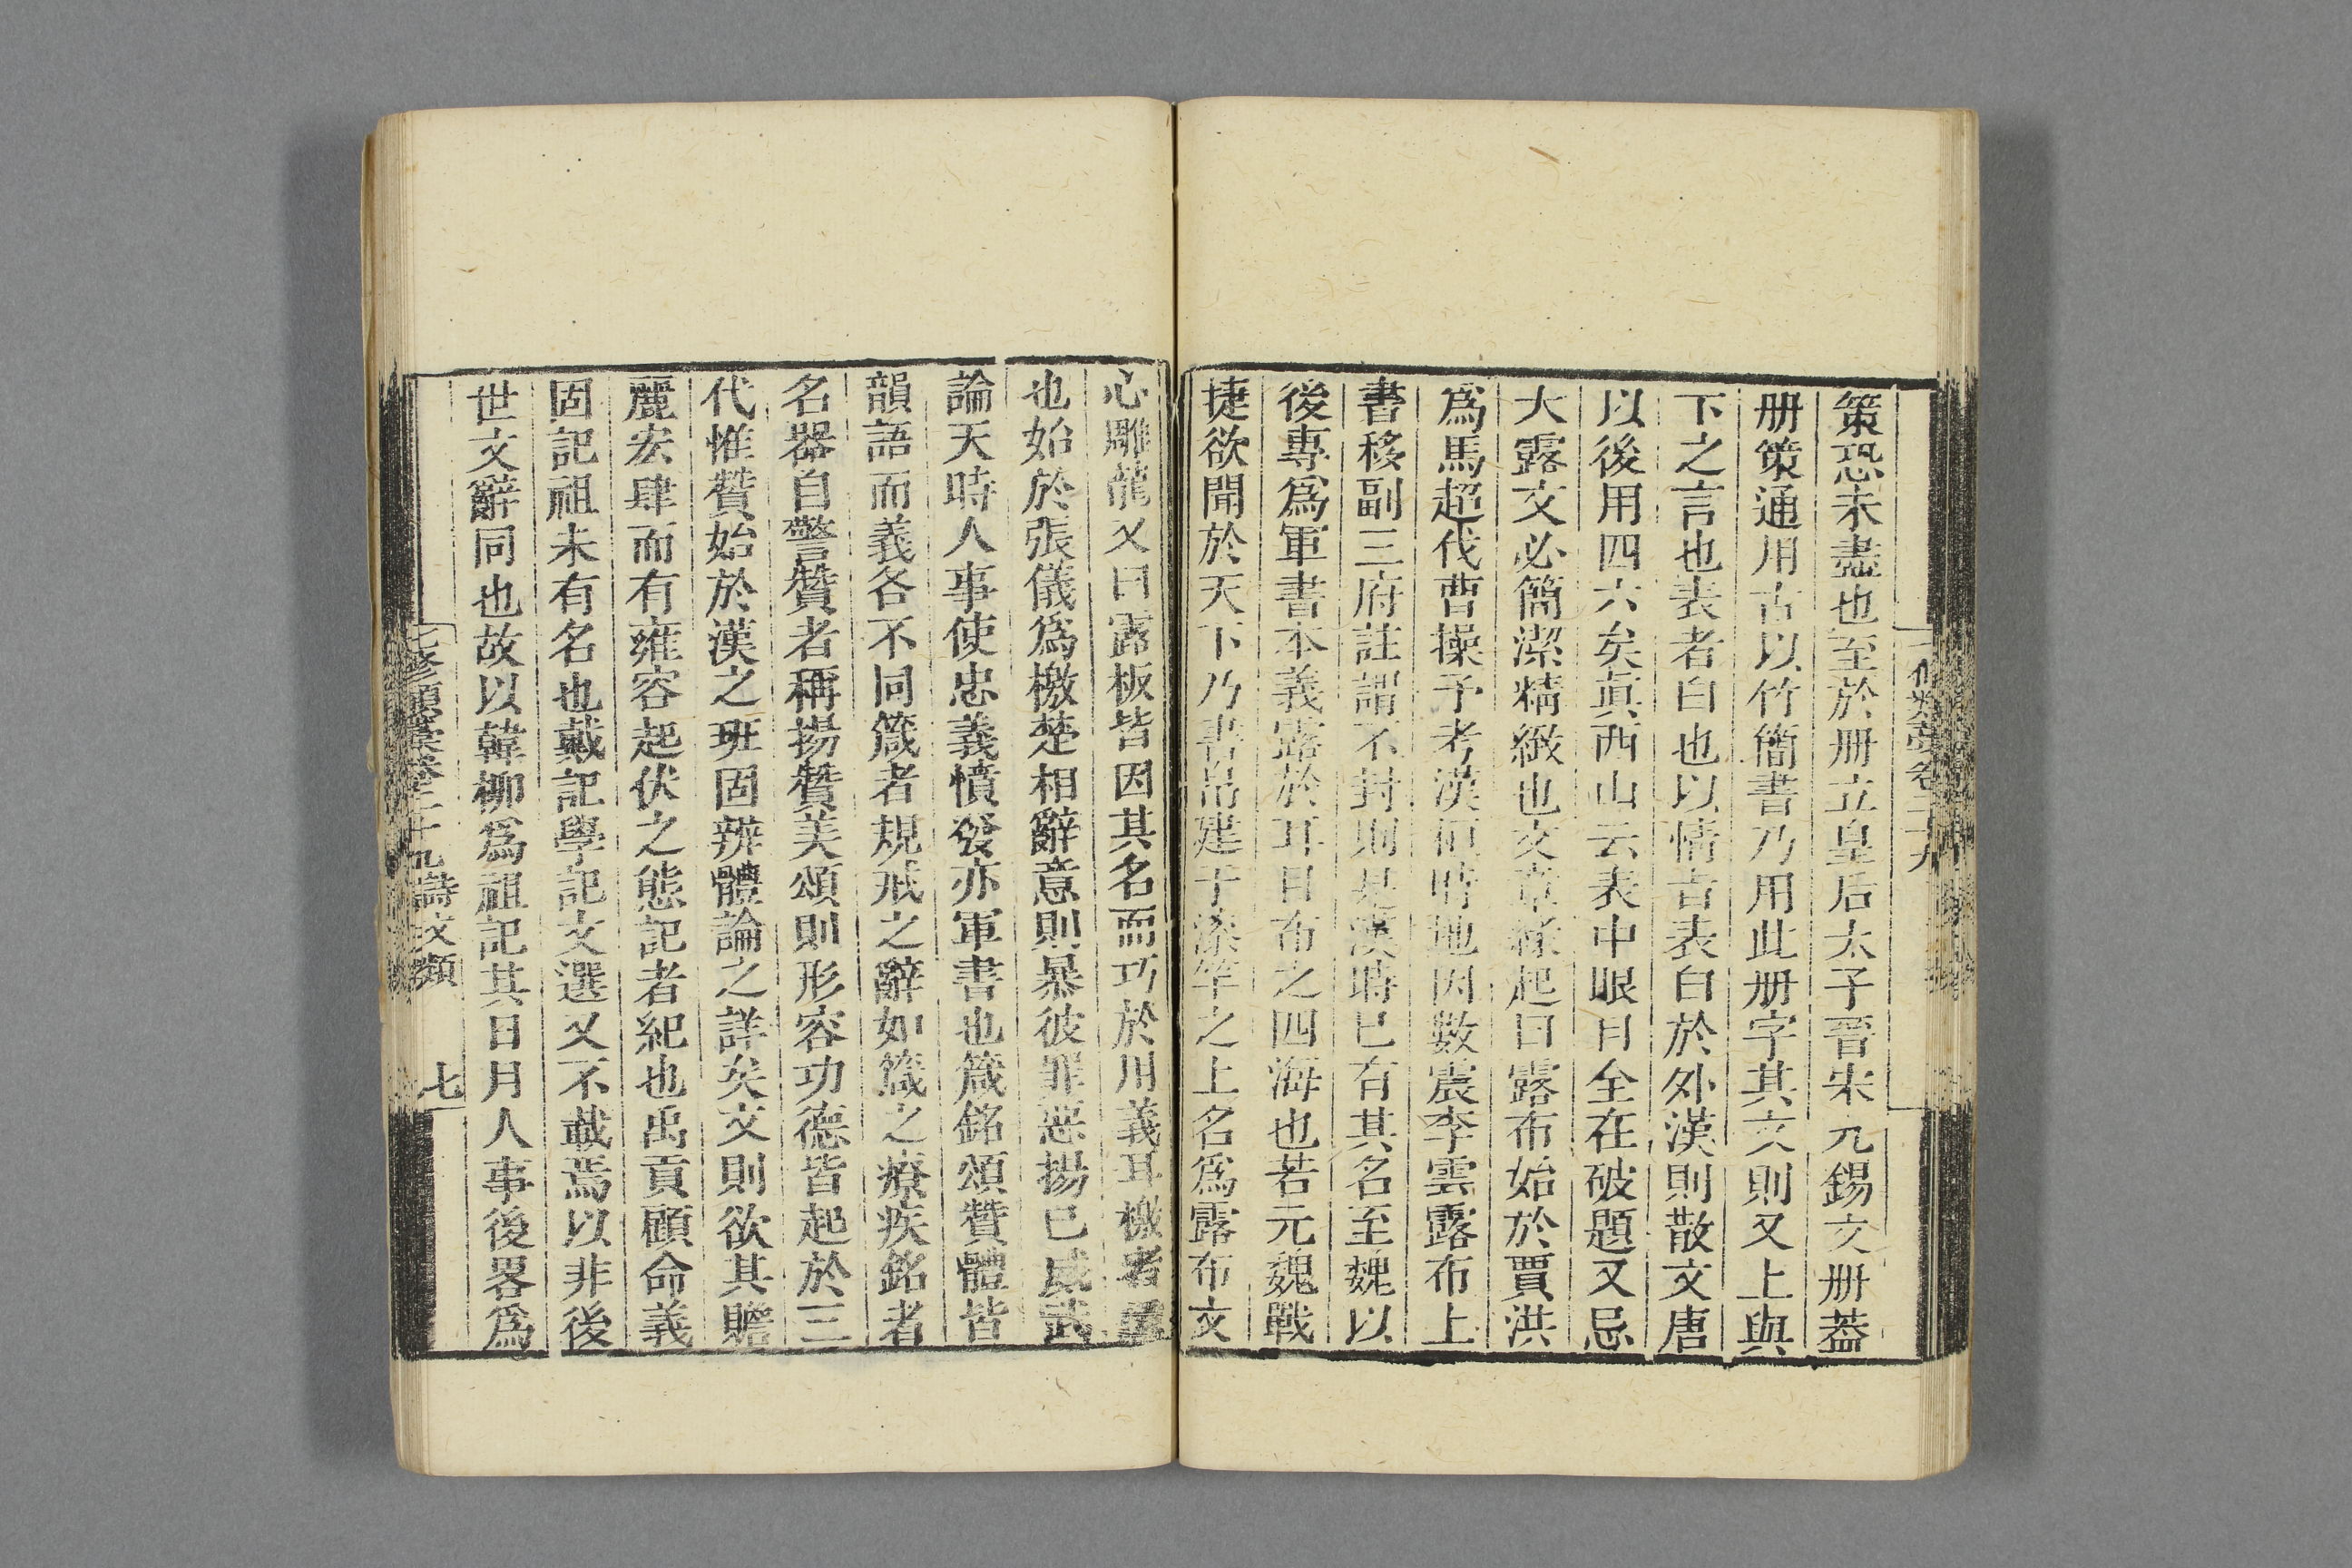 策恐未盡也至於册立皇后太子晉宋九錫文册葢
册策通用古以竹簡書乃用此册字其文則又上與
下之言也表者白也以情言表白於外漢則散文唐
以後用四六矣眞西山云表中眼目全在破題又忌
大露文必簡潔精緻也文章緣起曰露布始於賈洪
爲馬超伐曹操予考漢桓時地因數震李雲露布上
書移副三府註謂不封則是漢時已有其名至魏以
後專爲軍書本義露於耳目布之四海也若元魏戰
捷欲聞於天下乃書帛建于漆竿之上名爲露布文
心雕龍又曰露板皆因其名而巧於用義耳檄者
也始於張儀爲檄楚相辭意則暴彼罪惡揚已威武
論天時人事使忠義憤發亦軍書也箴銘頌贊體皆
韻語而義各不同箴者規戒之辭如箴之療疾銘者
名器自警贊者稱揚贊美頌則形容功德皆起於三
代惟贊始於漢之班固辨體論之詳矣文則欲其贍
麗宏肆而有雍容起伏之態記者紀也禹貢顧命義
固記祖未有名也戴記學記文選又不載焉以非後
世文辭同也故以韓柳爲祖記其日月人事後畧爲
七修類稾卷二十九詩文類 七